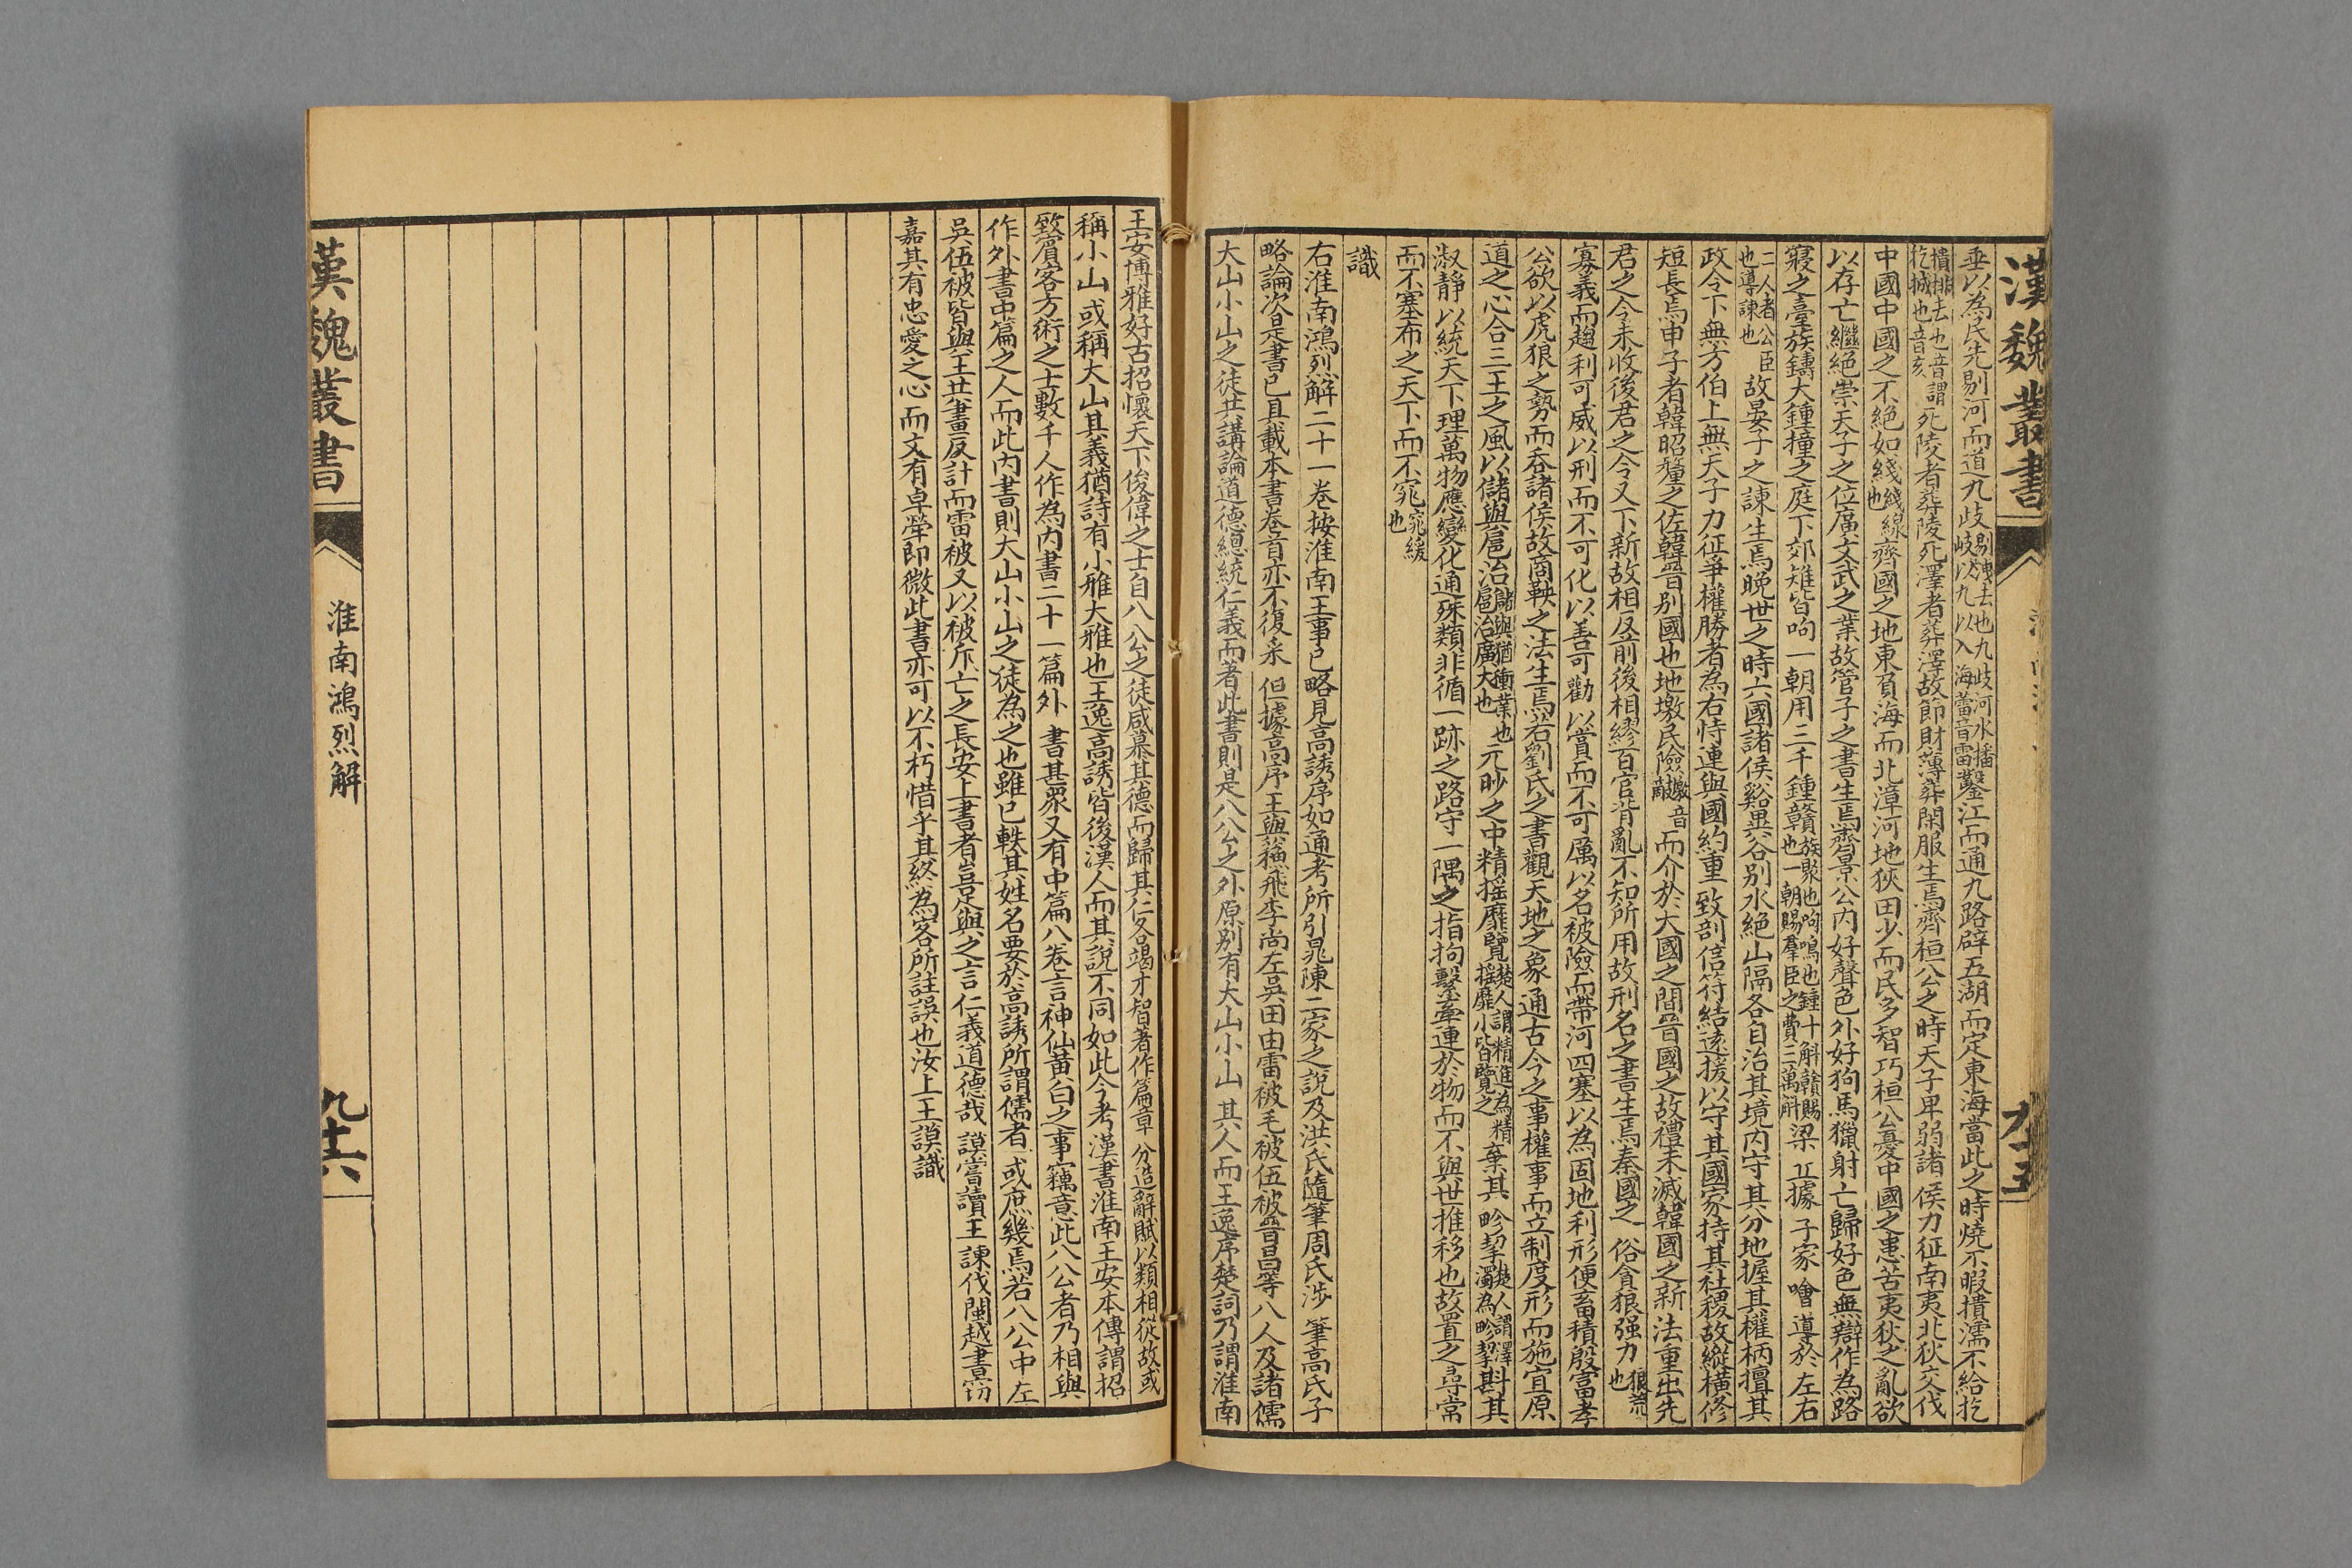 漢魏叢書
九十五
垂以為民先剔河而道九歧剔洩去也九歧河水播岐為九以入海蕾音雷鑿江而通九路辟五湖而定東海當此之時燒不暇撌濡不給扢
撌排去也音謂扢拭也音亥死陵者葬陵死澤者葬澤故節財薄葬閑服生焉齊桓公之時天子卑弱諸侯力征南夷北狄交伐
中國中國之不絕如綫綫線也齊國之地東負海而北漳河地狹田少而民多智巧桓公憂中國之患苦夷狄之亂欲
以存亡繼絕崇天子之位廣文武之業故管子之書生焉齊景公內好聲色外好狗馬獵射亡歸好色無辯作為路
寢之臺族鑄大鍾撞之庭下郊雉皆呴一朝用三千鍾贛族聚也呴鳴也鍾十斛贛賜也一朝賜羣臣之費三萬斛梁丘據子家噲導於左右
二人者公臣也導諫也故晏子之諫生焉晚世之時六國諸侯谿異谷別水絕山隔各自治其境內守其分地握其權柄擅其
政令下無方伯上無天子力征爭權勝者為右恃連與國約重致剖信符結遠援以守其國家持其社稷故縱橫修
短長焉申子者韓昭釐之佐韓晉別國也地墽民險墽音敲而介於大國之間晉國之故禮未滅韓國之新法重出先
君之令未收後君之令又下新故相反前後相繆百官背亂不知所用故刑名之書生焉秦國之俗貪狼强力狼荒也
寡義而趨利可威以刑而不可化以善可勸以賞而不可厲以名被險而帶河四塞以為固地利形便畜積殷富孝
公欲以虎狼之勢而吞諸侯故商鞅之法生焉若劉氏之書觀天地之象通古今之事權事而立制度形而施宜原
道之心合三王之風以儲與扈冶儲與猶衝業也扈冶廣大也元眇之中精搖靡覽楚人謂精進為精搖靡小皆覽之棄其畛挈楚人謂澤濁為畛挈斟其
淑靜以統天下理萬物應變化通殊類非循一跡之路守一隅之指拘繫牽連於物而不與世推移也故置之尋常
而不塞布之天下而不窕窕緩也
識
右淮南鴻烈解二十一卷按淮南王事已略見高誘序如通考所引晁陳二家之說及洪氏隨筆周氏涉筆高氏子
略論次是書已具載本書卷首亦不復采但據高序王與蘇飛李尚左吳田由雷被毛被伍被晉昌等八人及諸儒
大山小山之徒共講論道德總統仁義而著此書則是八公之外原別有大山小山其人而王逸序楚詞乃謂淮南
王安博雅好古招懷天下俊偉之士自八公之徒咸慕其德而歸其仁各竭才智著作篇章分造辭賦以類相從故或
稱小山或稱大山其義猶詩有小雅大雅也王逸高誘皆後漢人而其說不同如此今考漢書淮南王安本傳謂招
致賓客方術之士數千人作為內書二十一篇外書甚眾又有中篇八卷言神仙黃白之事竊意此八公者乃相與
作外書中篇之人而此內書則大山小山之徒為之也雖已軼其姓名要於高誘所謂儒者或庶幾焉若八公中左
吳伍被皆與王共畫反計而雷被又以被斥亡之長安上書者豈足與之言仁義道德哉謨嘗讀王諫伐閩越書竊
嘉其有忠愛之心而文有卓犖即微此書亦可以不朽惜乎其終為客所詿誤也汝上王謨識
漢魏叢書
淮南鴻烈解
九十六